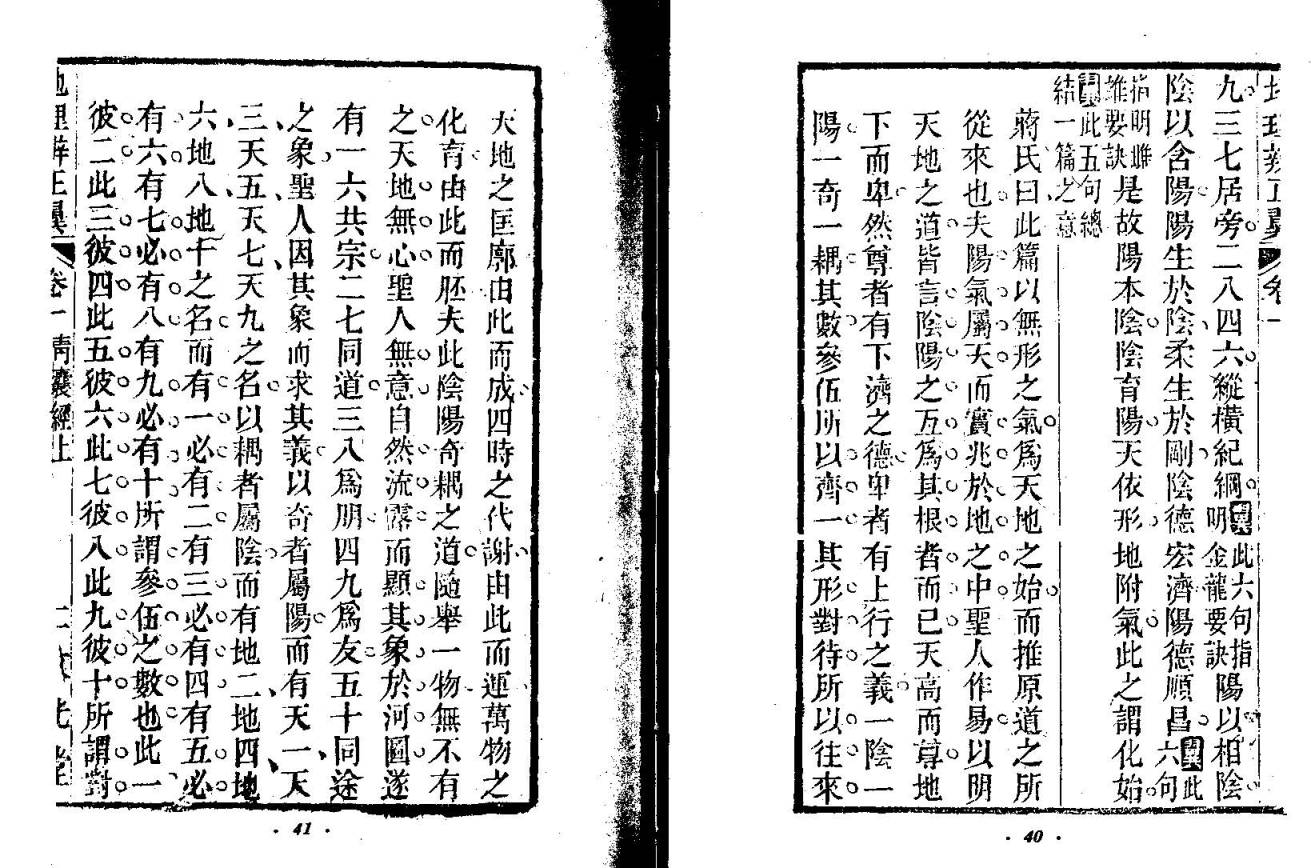 地理辨正翼 卷一
九三七居旁二八四六縱橫紀綱翼此六句指明金龍要訣陽以相陰
陰以含陽陽生於陰柔生於剛陰德宏濟陽德順昌翼此六句
指明雌雄要訣是故陽本陰陰育陽天依形地附氣此之謂化始
翼此五句總結一篇之意
蔣氏曰此篇以無形之氣爲天地之始而推原道之所
從來也夫陽氣屬天而實兆於地之中聖人作易以明
天地之道皆言陰陽之互爲其根者而已天高而尊地
下而卑然尊者有下濟之德卑者有上行之義一陰一
陽一奇一耦其數參伍所以齊一其形對待所以往來
40
天地之匡廓由此而成四時之代謝由此而運萬物之
化育由此而胚夫此陰陽奇耦之道隨舉一物無不有
之天地無心聖人無意自然流露而顯其象於河圖遂
有一六共宗二七同道三八爲朋四九爲友五十同途
之象聖人因其象而求其義以奇者屬陽而有天一天
三天五天七天九之名以耦者屬陰而有地二地四地
六地八地十之名而有一必有二有三必有四有五必
有六有七必有八有九必有十所謂參伍之數也此一
彼二此三彼四此五彼六此七彼八此九彼十所謂對
地理辨正翼 卷一靑囊經上
41